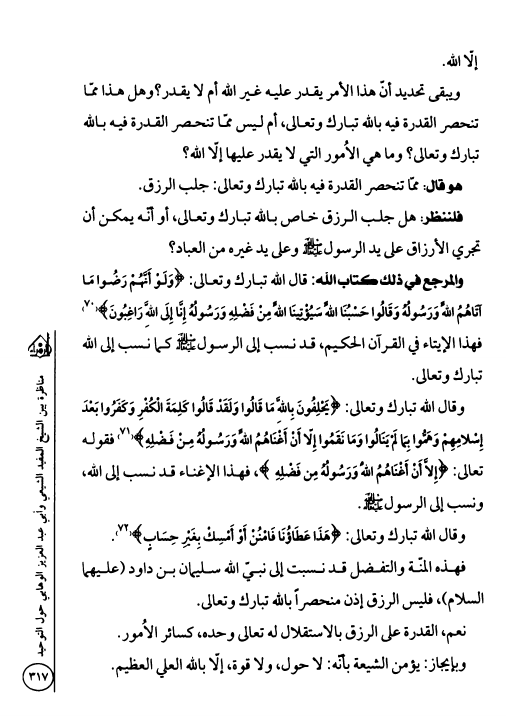 إلّا الله.
ويبقى تحديد أنّ هذا الأمر يقدر عليه غير الله أم لا يقدر؟ وهل هذا ممّا
تنحصر القدرة فيه بالله تبارك وتعالى، أم ليس ممّا تنحصر القدرة فيه بالله
تبارك وتعالى؟ وما هي الأمور التي لا يقدر عليها إلّا الله؟
هو قال: ممّا تنحصر القدرة فيه بالله تبارك وتعالى: جلب الرزق.
فلننظر: هل جلب الرزق خاص بالله تبارك وتعالى، أو أنّه يمكن أن
تجري الأرزاق على يد الرسول ﷺ وعلى يد غيره من العباد؟
والمرجع في ذلك كتاب الله: قال الله تبارك وتعالى: ﴿وَلَوْ أَنَّهُمْ رَضُوا مَا
آتَاهُمُ اللهُ وَرَسُولُهُ وَقَالُوا حَسْبُنَا اللهُ سَيُؤْتِينَا اللهُ مِنْ فَضْلِهِ وَرَسُولُهُ إِنَّا إِلَى اللهِ رَاغِبُونَ﴾(٧٠)
فهذا الإيتاء في القرآن الحكيم، قد نسب إلى الرسول ﷺ كما نسب إلى الله
تبارك وتعالى.
وقال الله تبارك وتعالى: ﴿يَحْلِفُونَ بِاللهِ مَا قَالُوا وَلَقَدْ قَالُوا كَلِمَةَ الْكُفْرِ وَكَفَرُوا بَعْدَ
إِسْلَامِهِمْ وَهَمُّوا بِمَا لَمْ يَنَالُوا وَمَا نَقَمُوا إِلَّا أَنْ أَغْنَاهُمُ اللهُ وَرَسُولُهُ مِنْ فَضْلِهِ﴾(٧١) فقوله
تعالى: ﴿إِلاَّ أَنْ أَغْنَاهُمُ اللهُ وَرَسُولُهُ مِن فَضْلِهِ﴾، فهذا الإغناء قد نسب إلى الله،
ونسب إلى الرسول ﷺ.
وقال الله تبارك وتعالى: ﴿هَذَا عَطَاؤُنَا فَامْنُنْ أَوْ أَمْسِكْ بِغَيْرِ حِسَابٍ﴾(٧٢).
فهذه المنّة والتفضل قد نسبت إلى نبيّ الله سليمان بن داود (عليهما
السلام)، فليس الرزق إذن منحصراً بالله تبارك وتعالى.
نعم، القدرة على الرزق بالاستقلال له تعالى وحده، كسائر الأمور.
وبإيجاز: يؤمن الشيعة بأنّه: لا حول، ولا قوة، إلّا بالله العلي العظيم.
مناظرة بين الشيخ المفيد الشيعي وأبي عبد العزيز الوهابي حول التوحيد
٣١٧